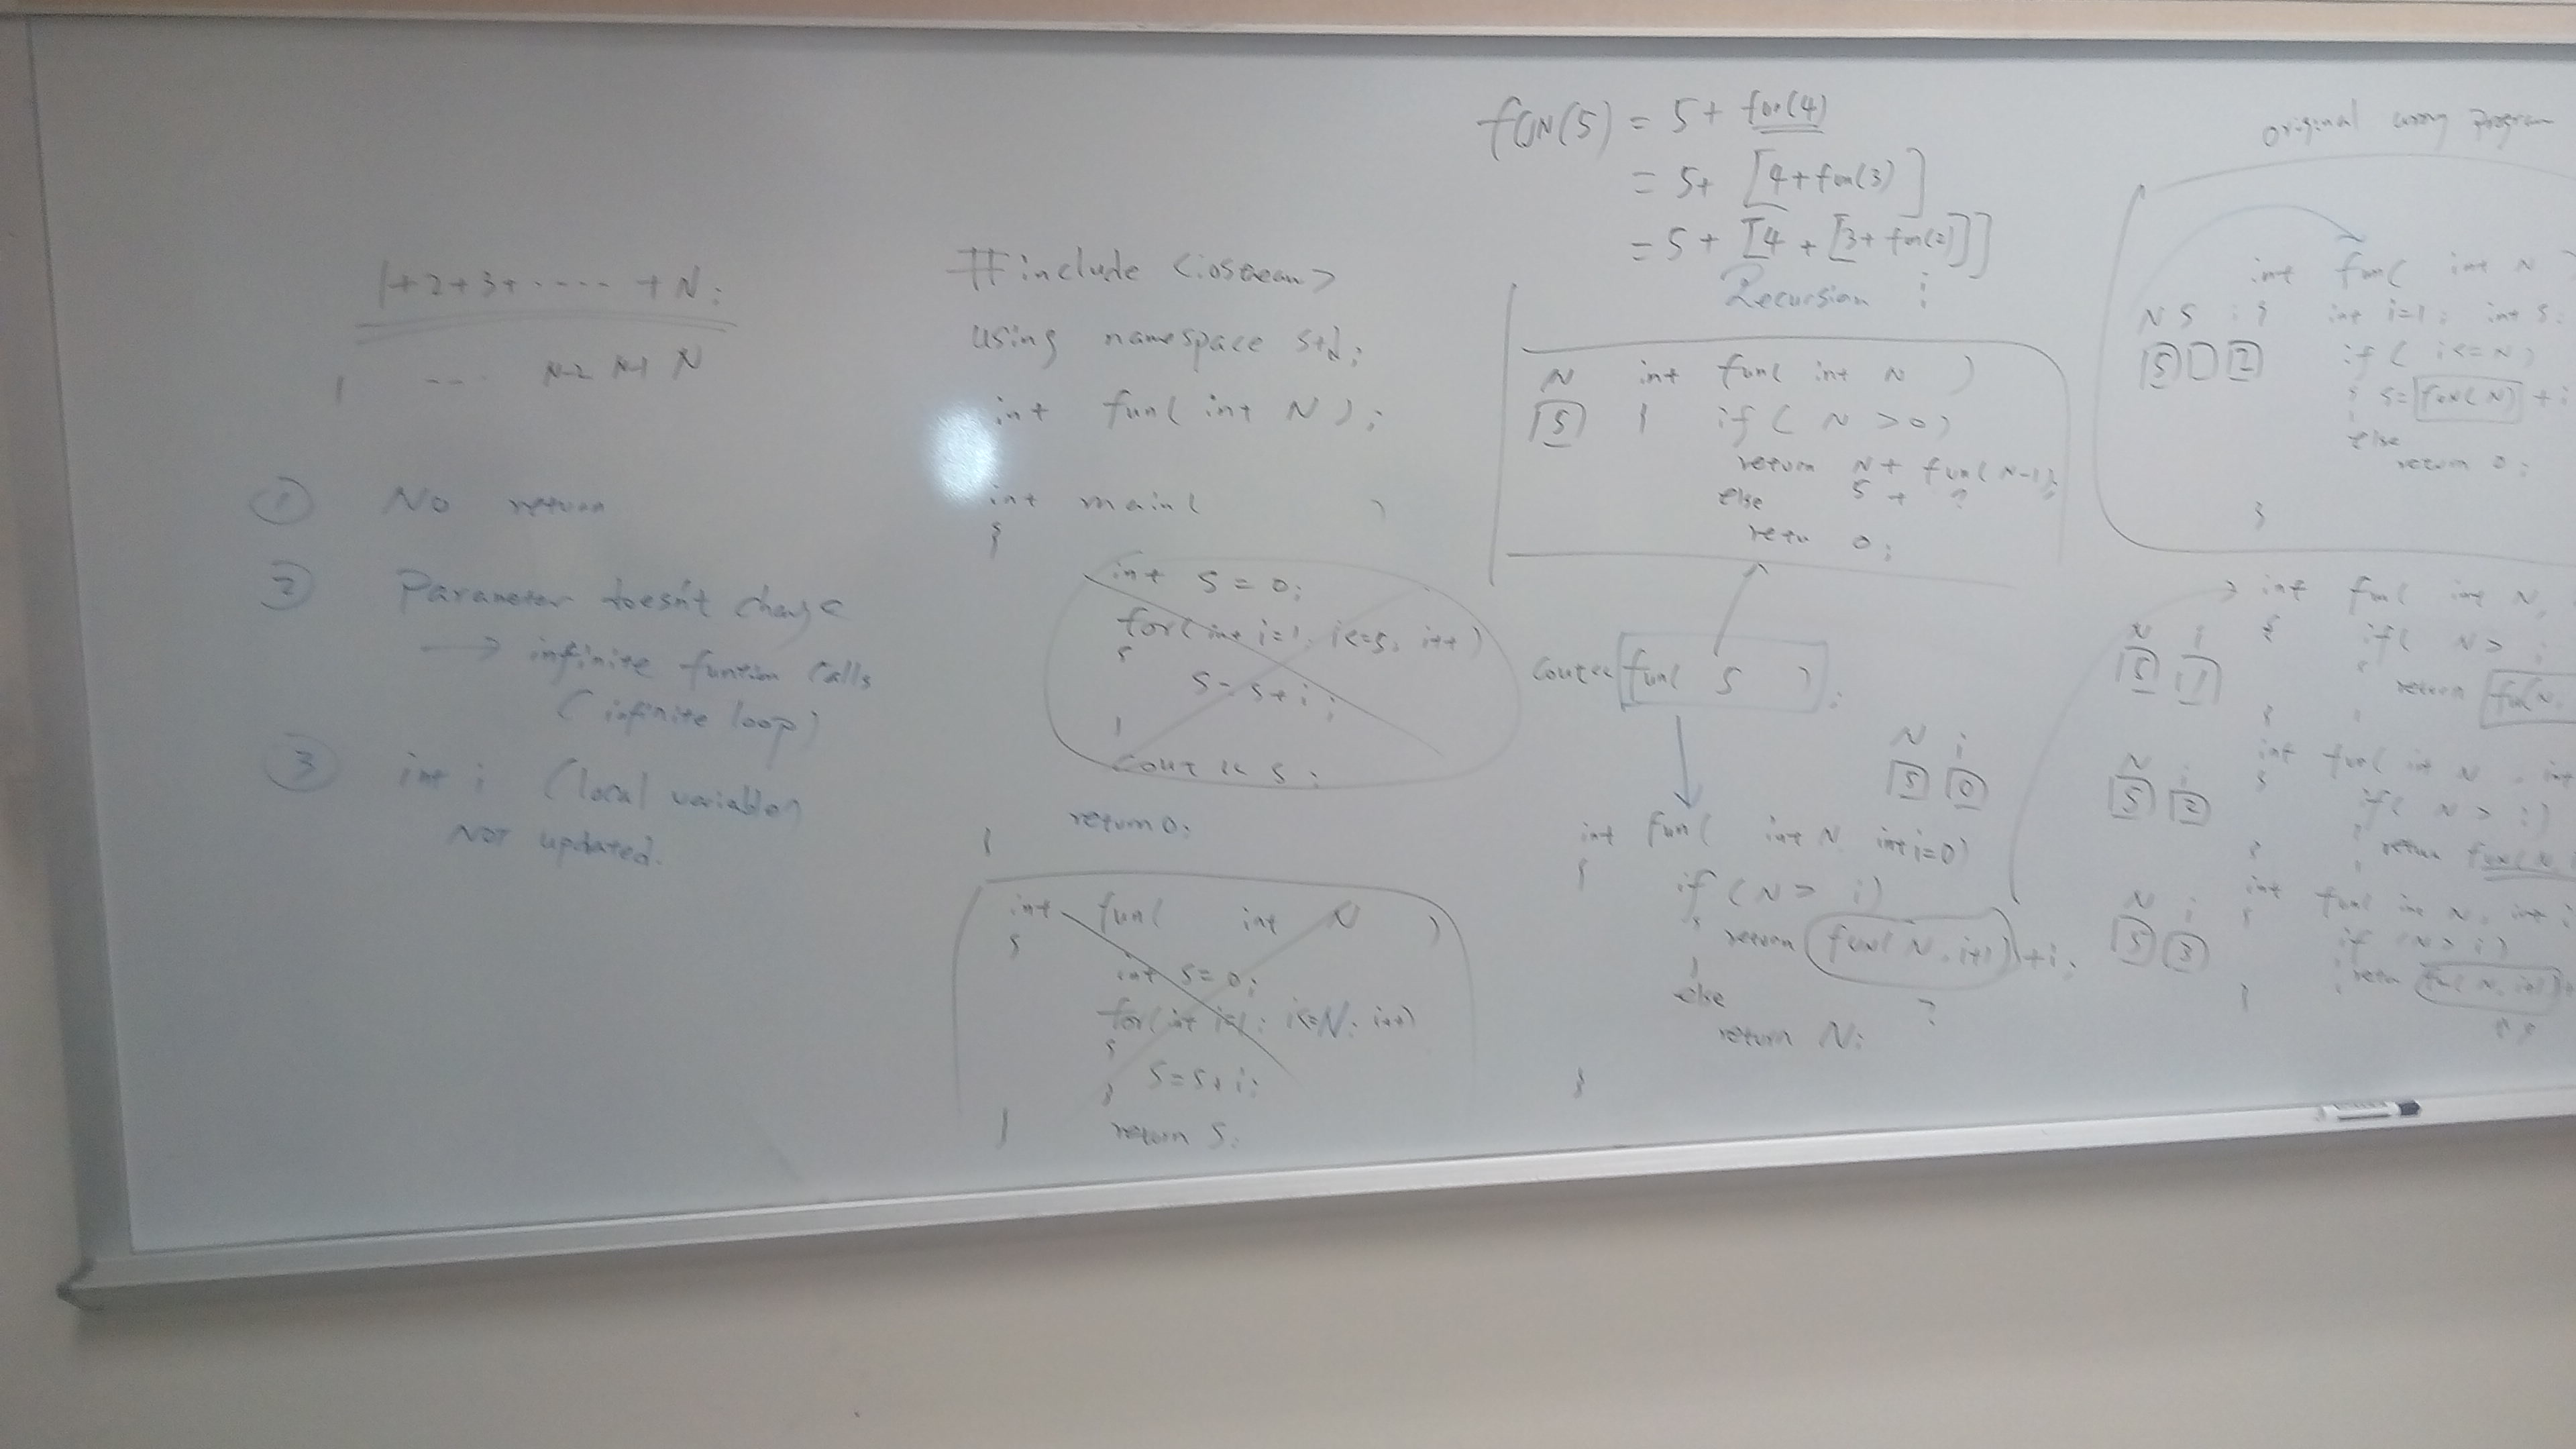 1+2+3+ ···· + N;
1 ---- N-2 N-1 N
① No return
② Parameter doesn't change
→ infinite funtion calls
(infinite loop)
③ int i (local variable)
NOT updated.
#include <iostream>
using namespace std;
int fun( int N );
int main( )
{
int S = 0;
for(int i=1; i<=5; i++)
{
S= S+i;
}
cout << S;
return 0;
}
int fun( int N )
{
int S=0;
for(int i=1; i<=N; i++)
{
S=S+i;
}
return S;
}
fun(5) = 5+ fun(4)
= 5+ [4+fun(3)]
= 5+ [4 + [3+ fun(2)]]
Recursion ⋮
N int fun( int N )
5 { if ( N >0)
return N+ fun( N-1);
5 + ?
else
retu 0;
cout<< fun( 5 );
N i
5 0
int fun( int N, int i=0)
{
if (N> i)
{ return fun( N, i+1) +i;
}
else ?
return N;
}
original wrong program
int fun( int N
N S i { int i=1; int S;
5 2 if ( i<=N)
{ S= fun(N) + i
}
else
return 0;
}
→ int fun( int N,
N i { if( N> i
5 1 { return fun(N,
} }
int fun( int N, int
N i { if( N > i)
5 2 { return fun(N,
} }
int fun( int N, int i
N i { if (N> i)
5 3 { retun fun( N, i+1)+
}